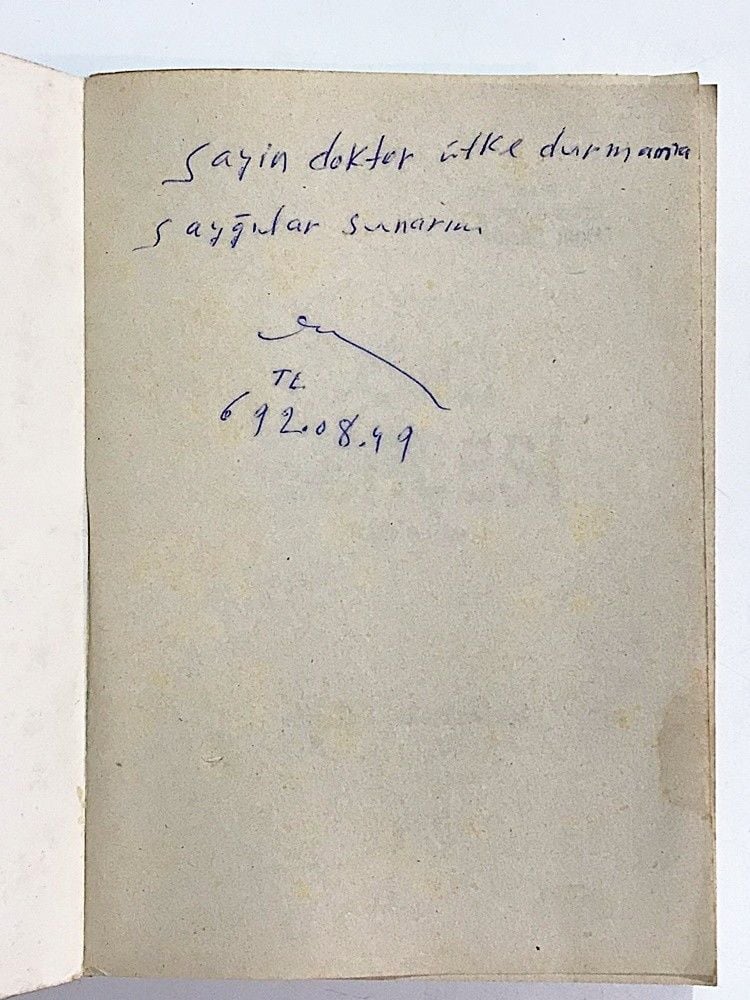 Sayin doktor ülke durmana
sayğılar sunarım
TL
692.08.49